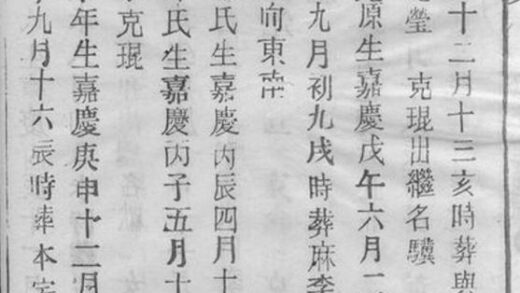 十二月十三亥時葬與
瑩 克琨出繼名驥
原生嘉慶戊午六月
九月初九戌時葬麻李
向東南
氏生嘉慶丙辰四月十
氏生嘉慶丙子五月十
克琨
年生嘉慶庚申十二月
九月十六辰時葬本宅